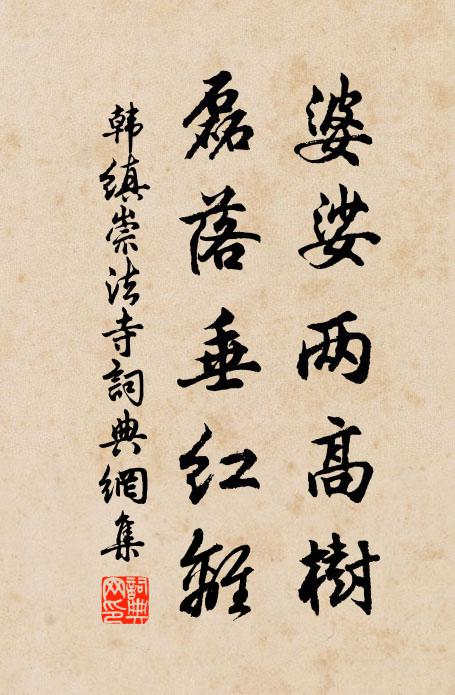 婆娑两高樹
磊落垂红離
韩缜崇法寺詞典網集
詞典网印